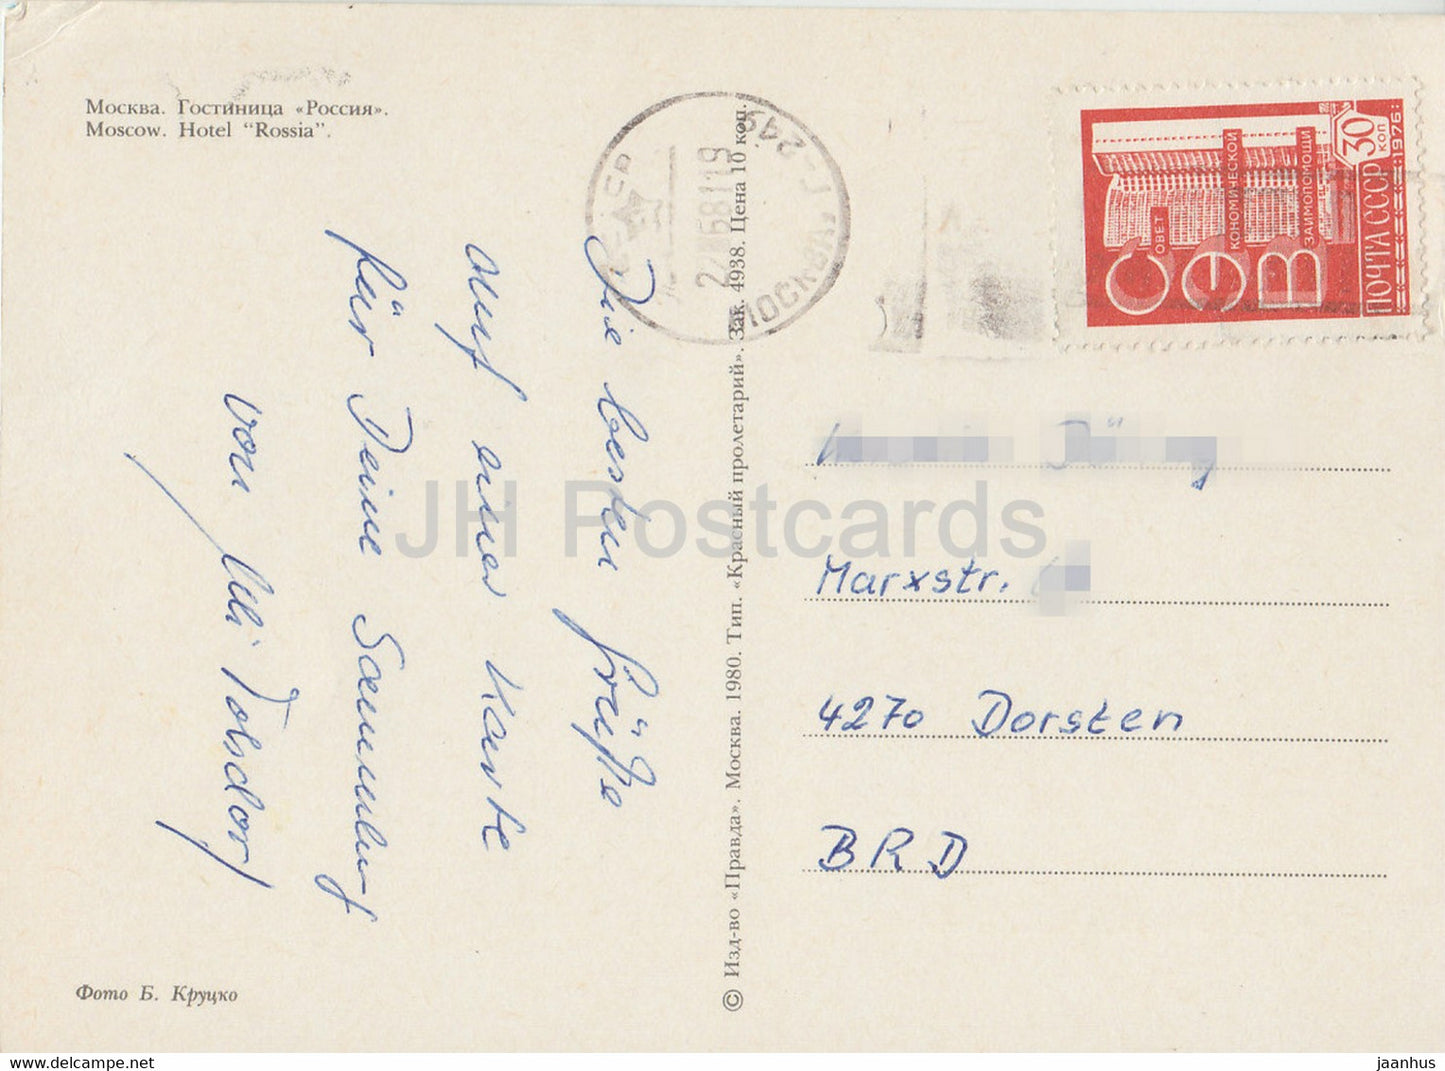 Москва. Гостиница «Россия».
Moscow. Hotel "Rossia".
Die besten Grüße
auf einer Karte
für Deine Sammlung
von Uli Tolsdorf
Фото Б. Круцко
© Изд-во «Правда». Москва. 1980. Тип. «Красный пролетарий». Зак. 4938. Цена 10 коп.
МОСКВА
СССР
СОВЕТ
ЭКОНОМИЧЕСКОЙ
ВЗАИМОПОМОЩИ
ПОЧТА СССР
30 КОП
•1976•
Marxstr.
4270 Dorsten
BRD
JH Postcards
www.delcampe.net
jaanhus